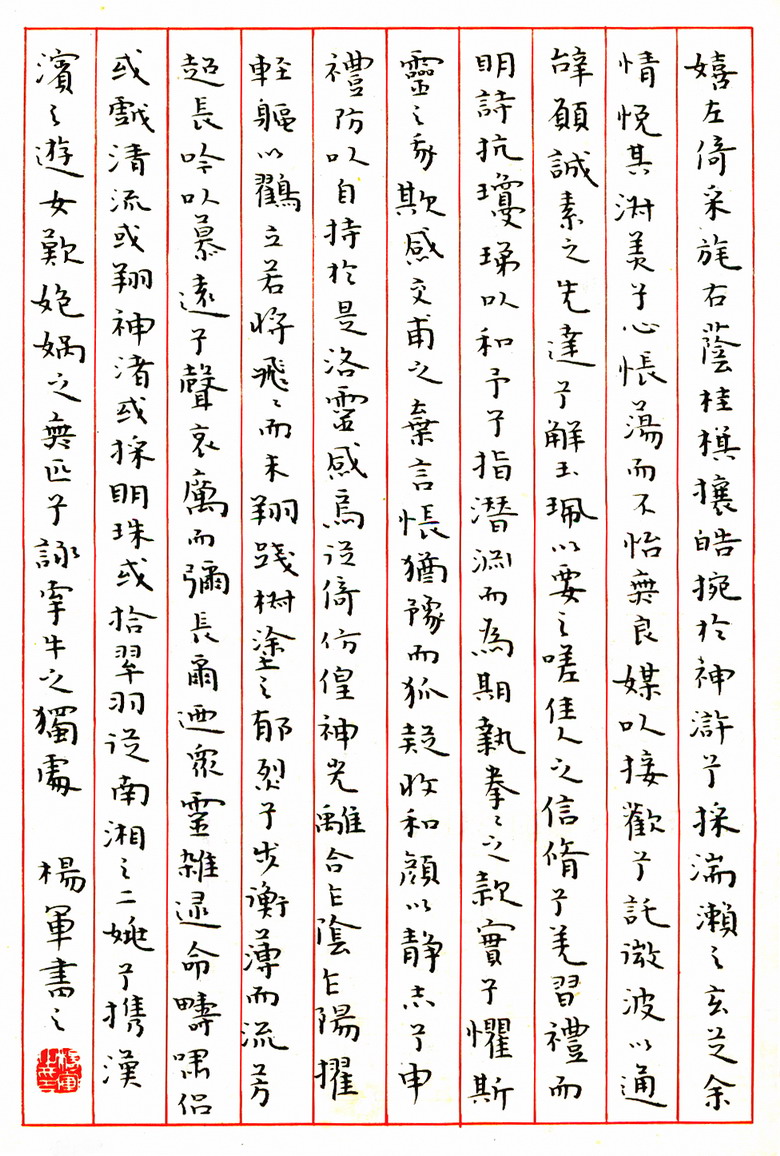 嬉左倚采旄右蔭桂棋攘皓捥於神滸兮採湍瀨之玄芝余
情悦其淑美兮心悵蕩而不怡無良媒以接歡兮託微波以通
辭願誠素之先達兮解玉珮以要之嗟佳人之信脩兮羌習禮而
明詩抗瓊珶以和予兮指潛淵而為期執拳々之款實兮懼斯
靈之我欺感交甫之棄言悵猶豫而狐疑收和顏以靜志兮申
禮防以自持於是洛靈感焉徙倚仿偟神光離合乍陰乍陽擢
輕軀以鶴立若將飛々而未翔踐椒塗之郁烈兮步衡薄而流芳
超長吟以慕遠兮聲哀厲而彌長爾迺衆靈雜遝命疇嘯侶
或戲清流或翔神渚或採明珠或拾翠羽從南湘之二姚兮攜漢
濱之遊女歎匏媧之無匹兮詠牽牛之獨處 楊軍書之